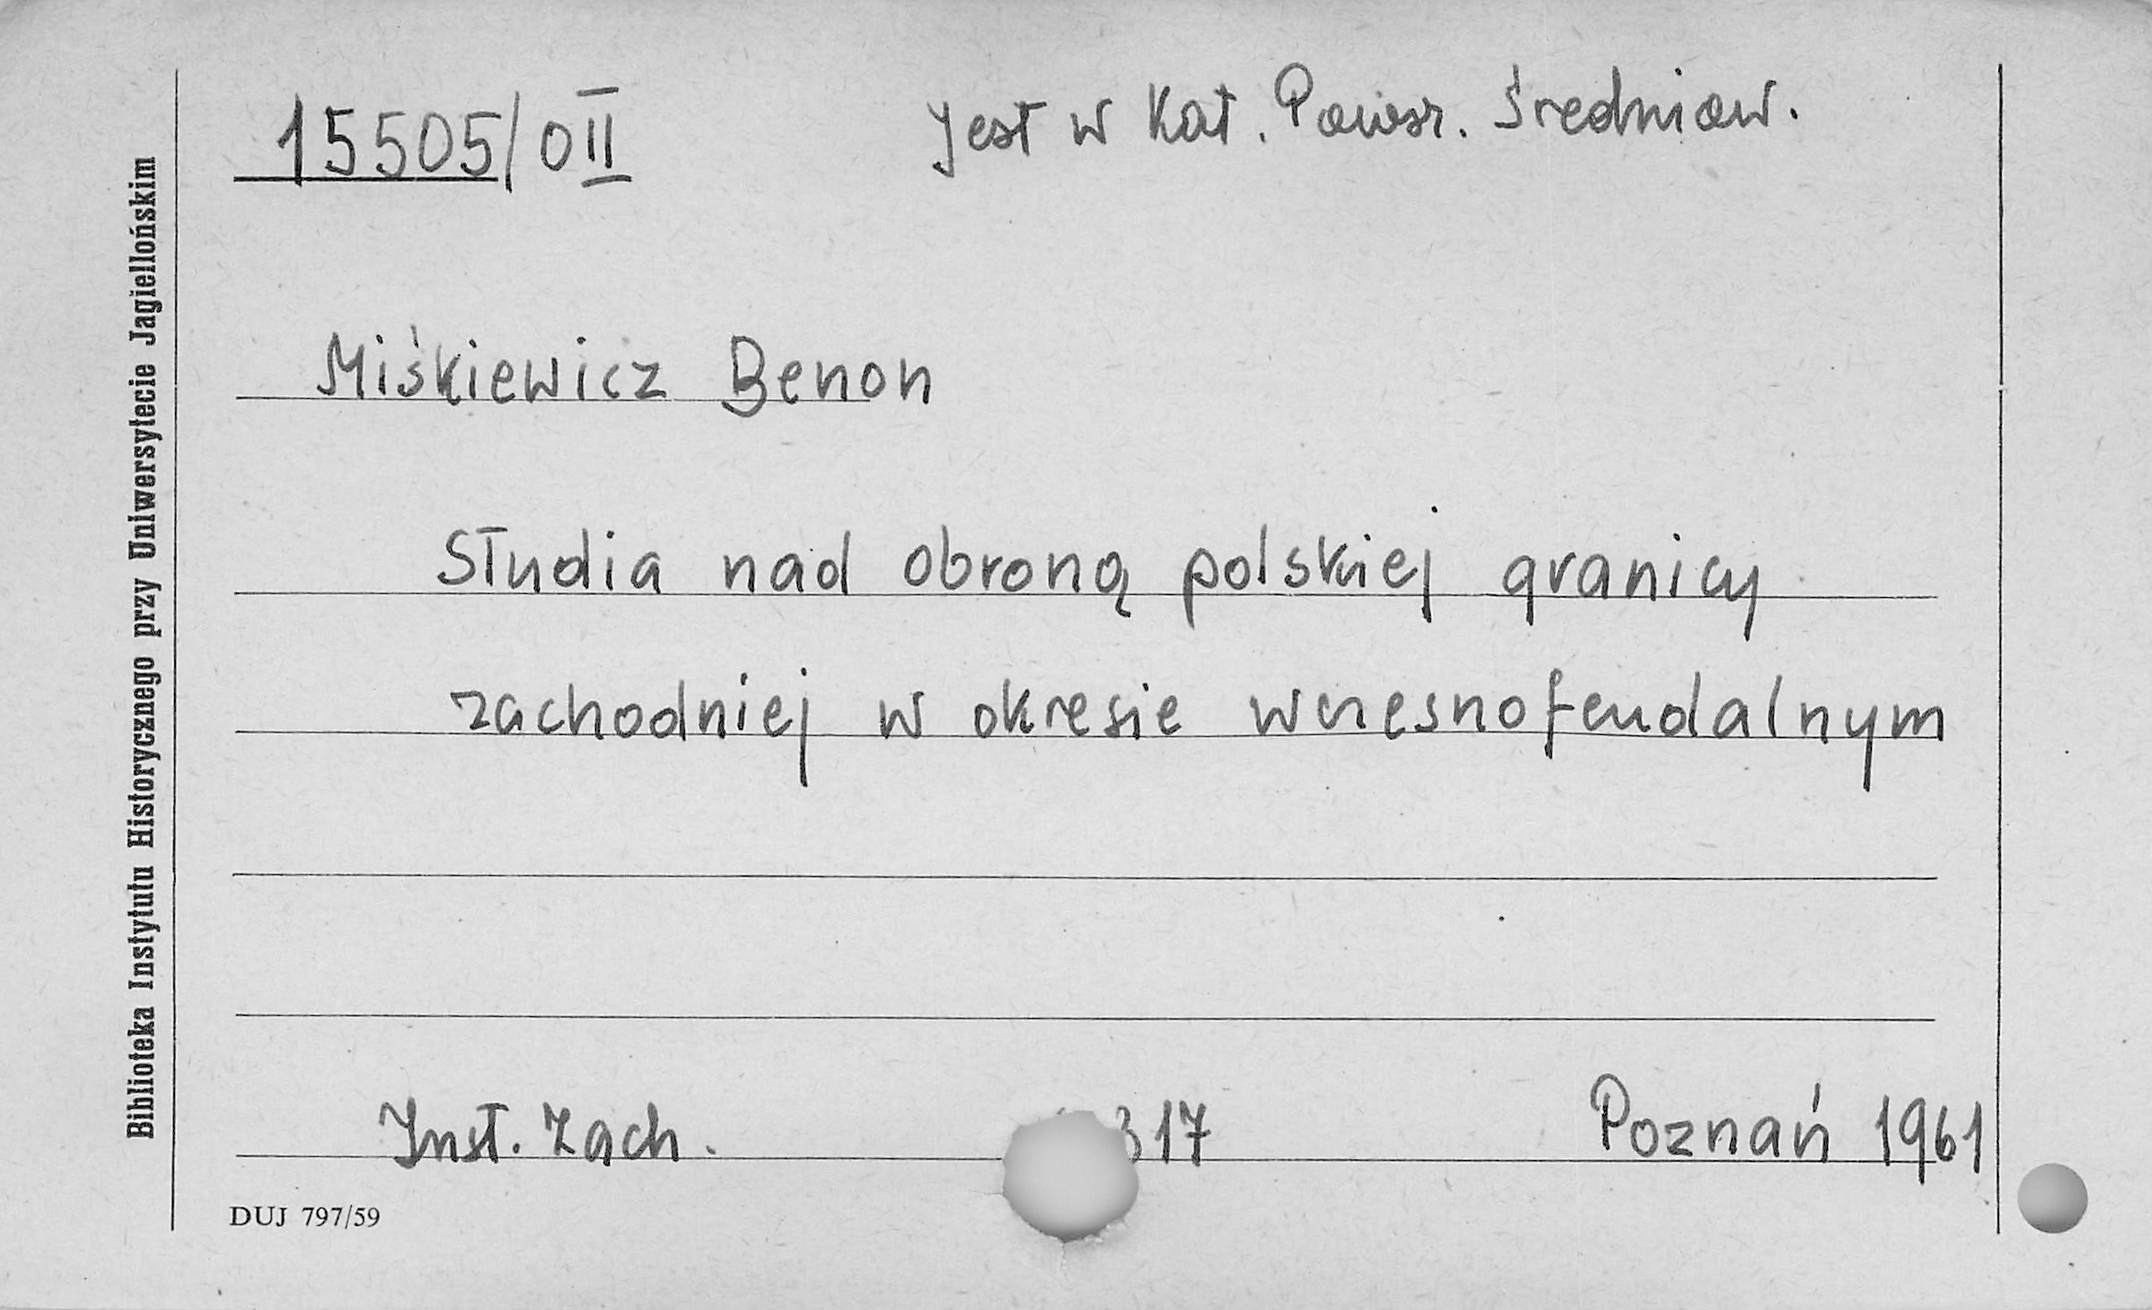 15505/0II
Jest w Kat. Powsz. Średniow.
Miśkiewicz Benon
Studia nad obroną polskiej granicy
zachodniej w okresie wczesnofeudalnym
Inst. Zach. 317 Poznań 1961
DUJ 797/59
Biblioteka Instytutu Historycznego przy Uniwersytecie Jagiellońskim